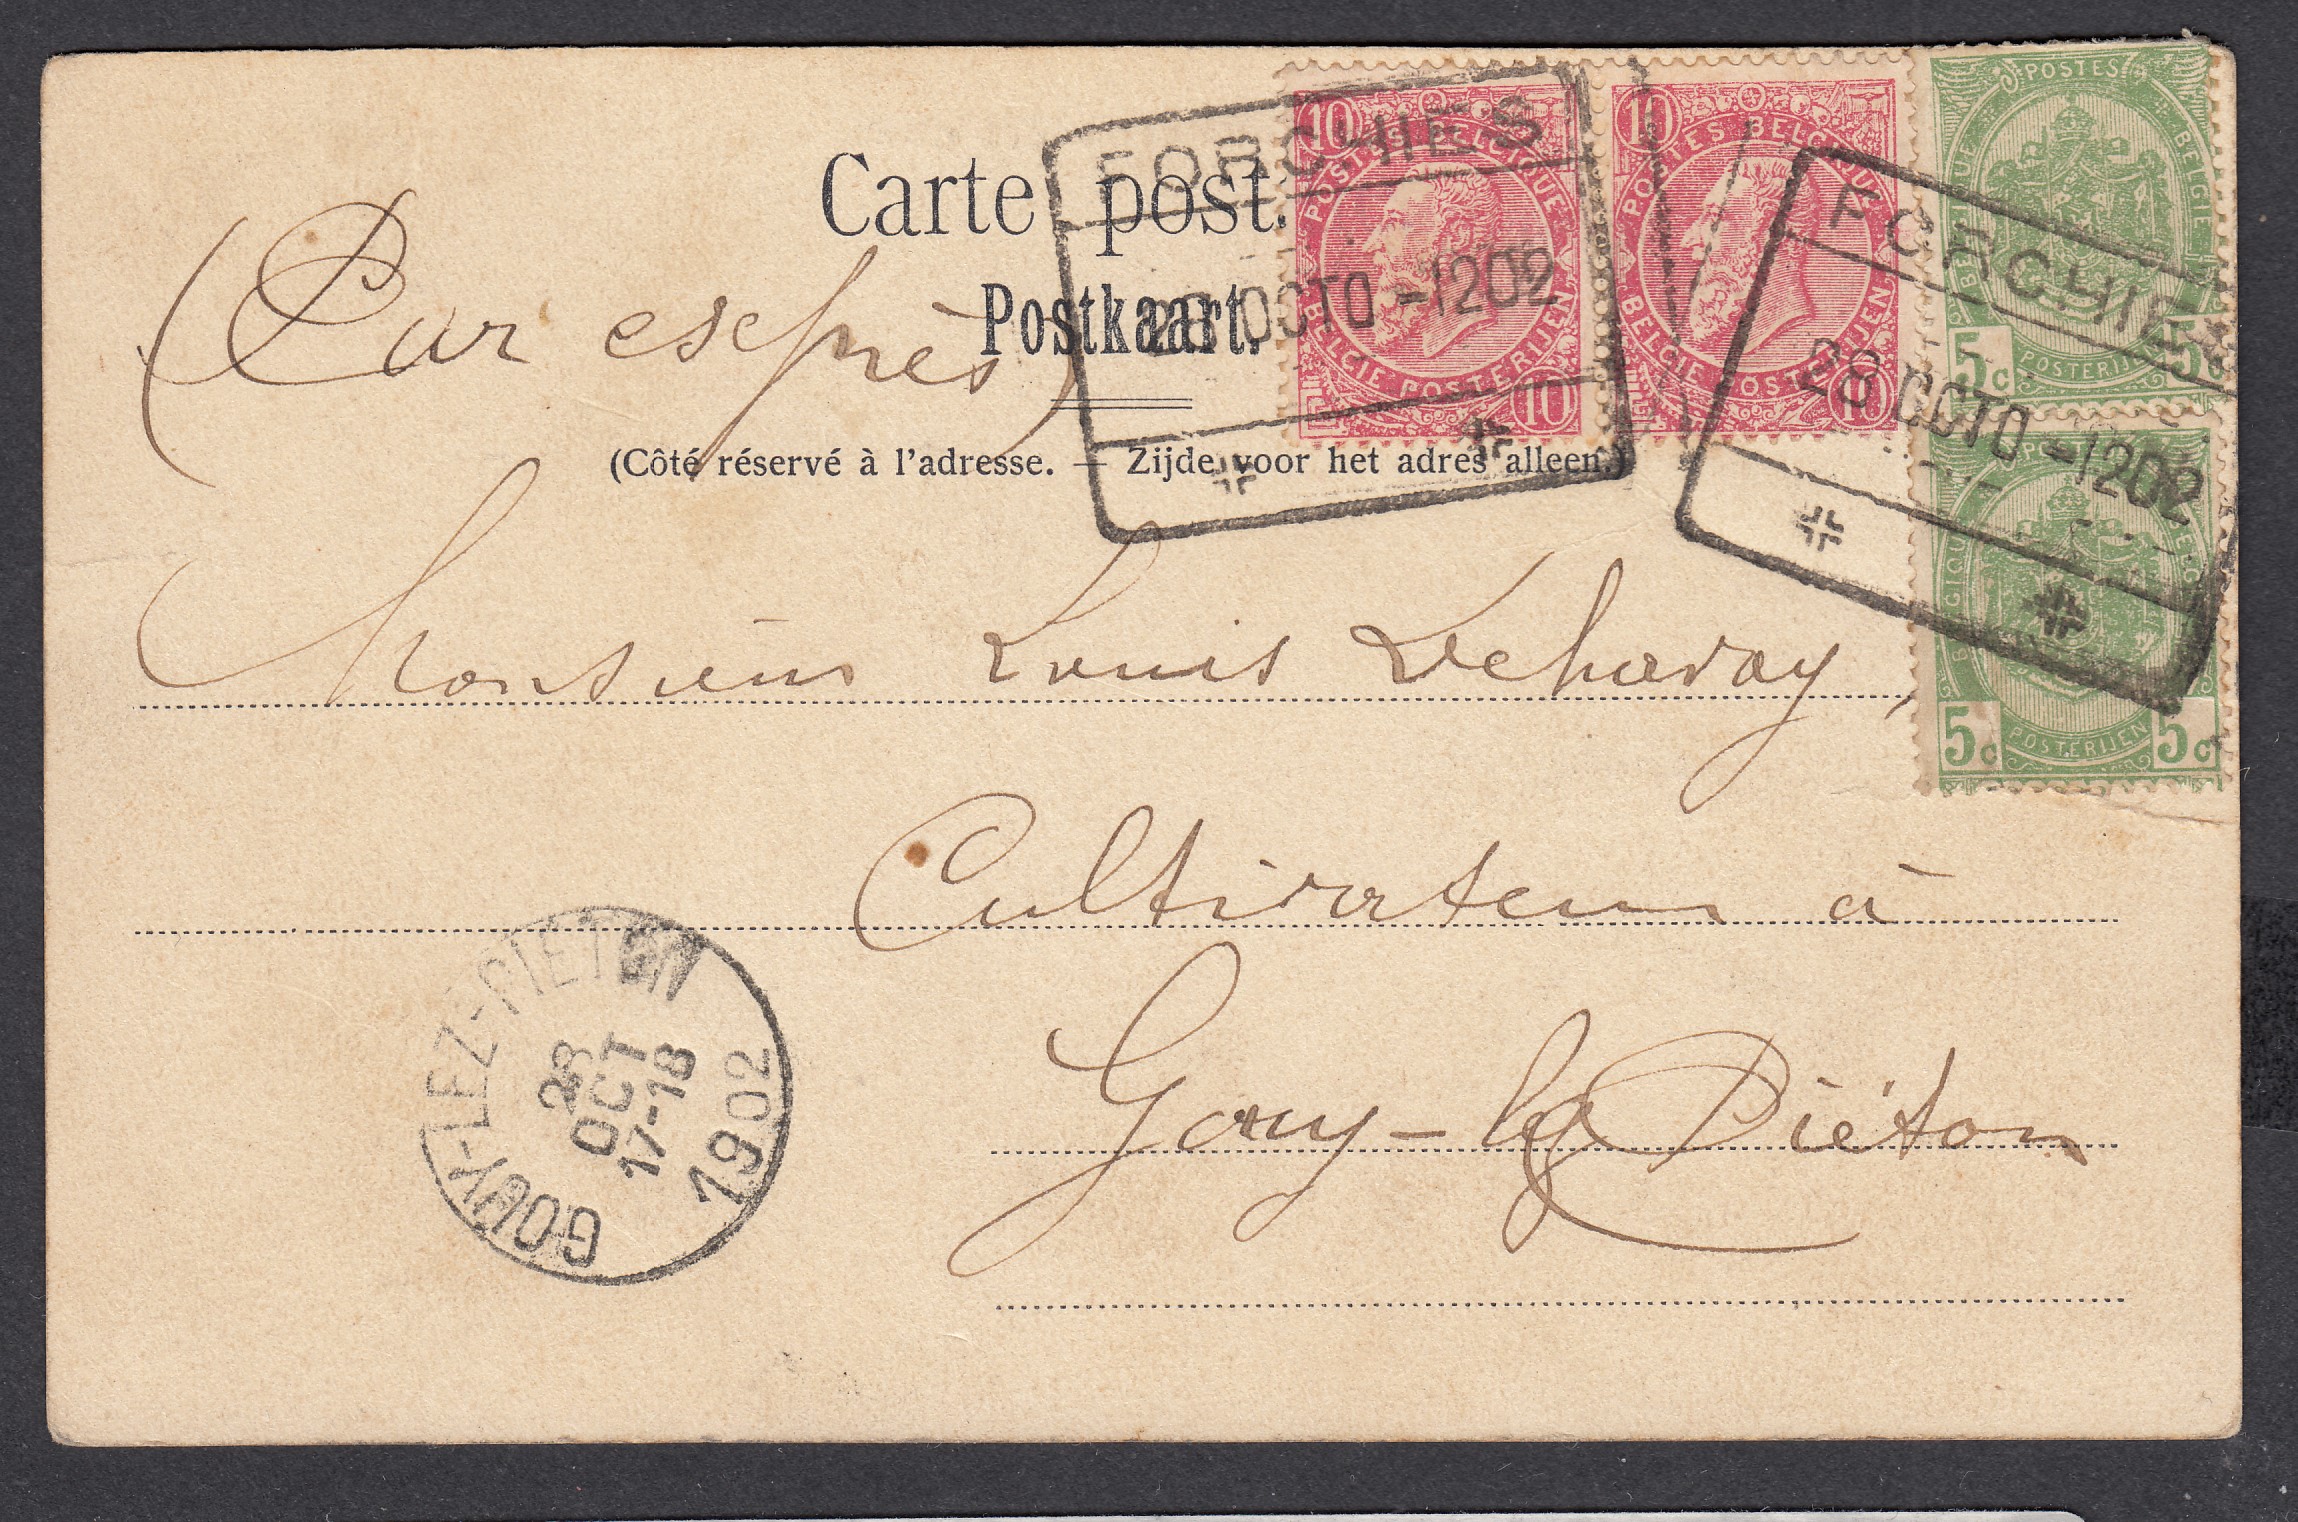 Carte post.
Postkaart.
(Par exprès)
(Côté réservé à l'adresse. — Zijde voor het adres alleen.)
FORCHIES
28 OCTO -1202
10 10
POSTES BELGIQUE
BELGIE POSTERIJEN
10
10
POSTES BELGIQUE
BELGIE POSTERIJEN
10
POSTES
BELGIQUE BELGIE
5c POSTERIJEN 5c
FORCHIES
28 OCTO -1202
5c POSTERIJEN 5c
Monsieur Louis Deharay,
Cultivateur à
Gouy-lez Piéton
GOUY-LEZ-PIETON
28
OCT
17-18
1902